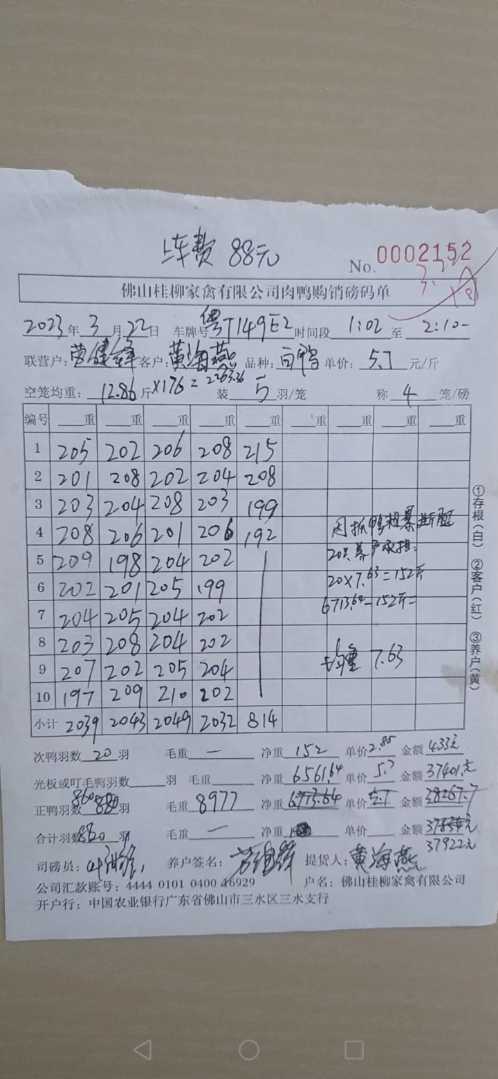 车费 88元
No. 0002152
佛山桂柳家禽有限公司肉鸭购销磅码单
2023年3月22日 车牌号 粤T149E2 时间段 1:02 至 2:10
联营户: 客户: 黄海燕 品种: 白鸭 单价: 5.7 元/斤
空笼均重: 12.86斤 ×176= 2263.36 装 5 羽/笼 称 4 笼/磅
编号 重 重 重 重 重 重 重 重 重
1 205 202 206 208 215
2 201 208 202 204 208
3 203 204 208 203 199
4 208 206 201 206 192
5 209 198 204 202
6 202 201 205 199
7 204 205 204 202
8 203 208 204 202
9 207 202 205 204
10 197 209 210 202
小计 2039 2043 2049 2032 814
20×7.63=152斤
6713.64-152斤=
均重 7.63
①存根(白) ②客户(红) ③养户(黄)
次鸭羽数 20 羽 毛重 — 净重 152 单价 2.85 金额 433元
光板或叮毛鸭羽数 羽 毛重 净重 6561.64 单价 5.7 金额 37401元
正鸭羽数 860 880 羽 毛重 8977 净重 6713.64 单价 5.7 金额
合计羽数 880 羽 毛重 — 净重 单价 金额
37922元
司磅员: 养户签名: 提货人: 黄海燕
公司汇款账号: 4444 0101 0400 16929 户名: 佛山桂柳家禽有限公司
开户行: 中国农业银行广东省佛山市三水区三水支行